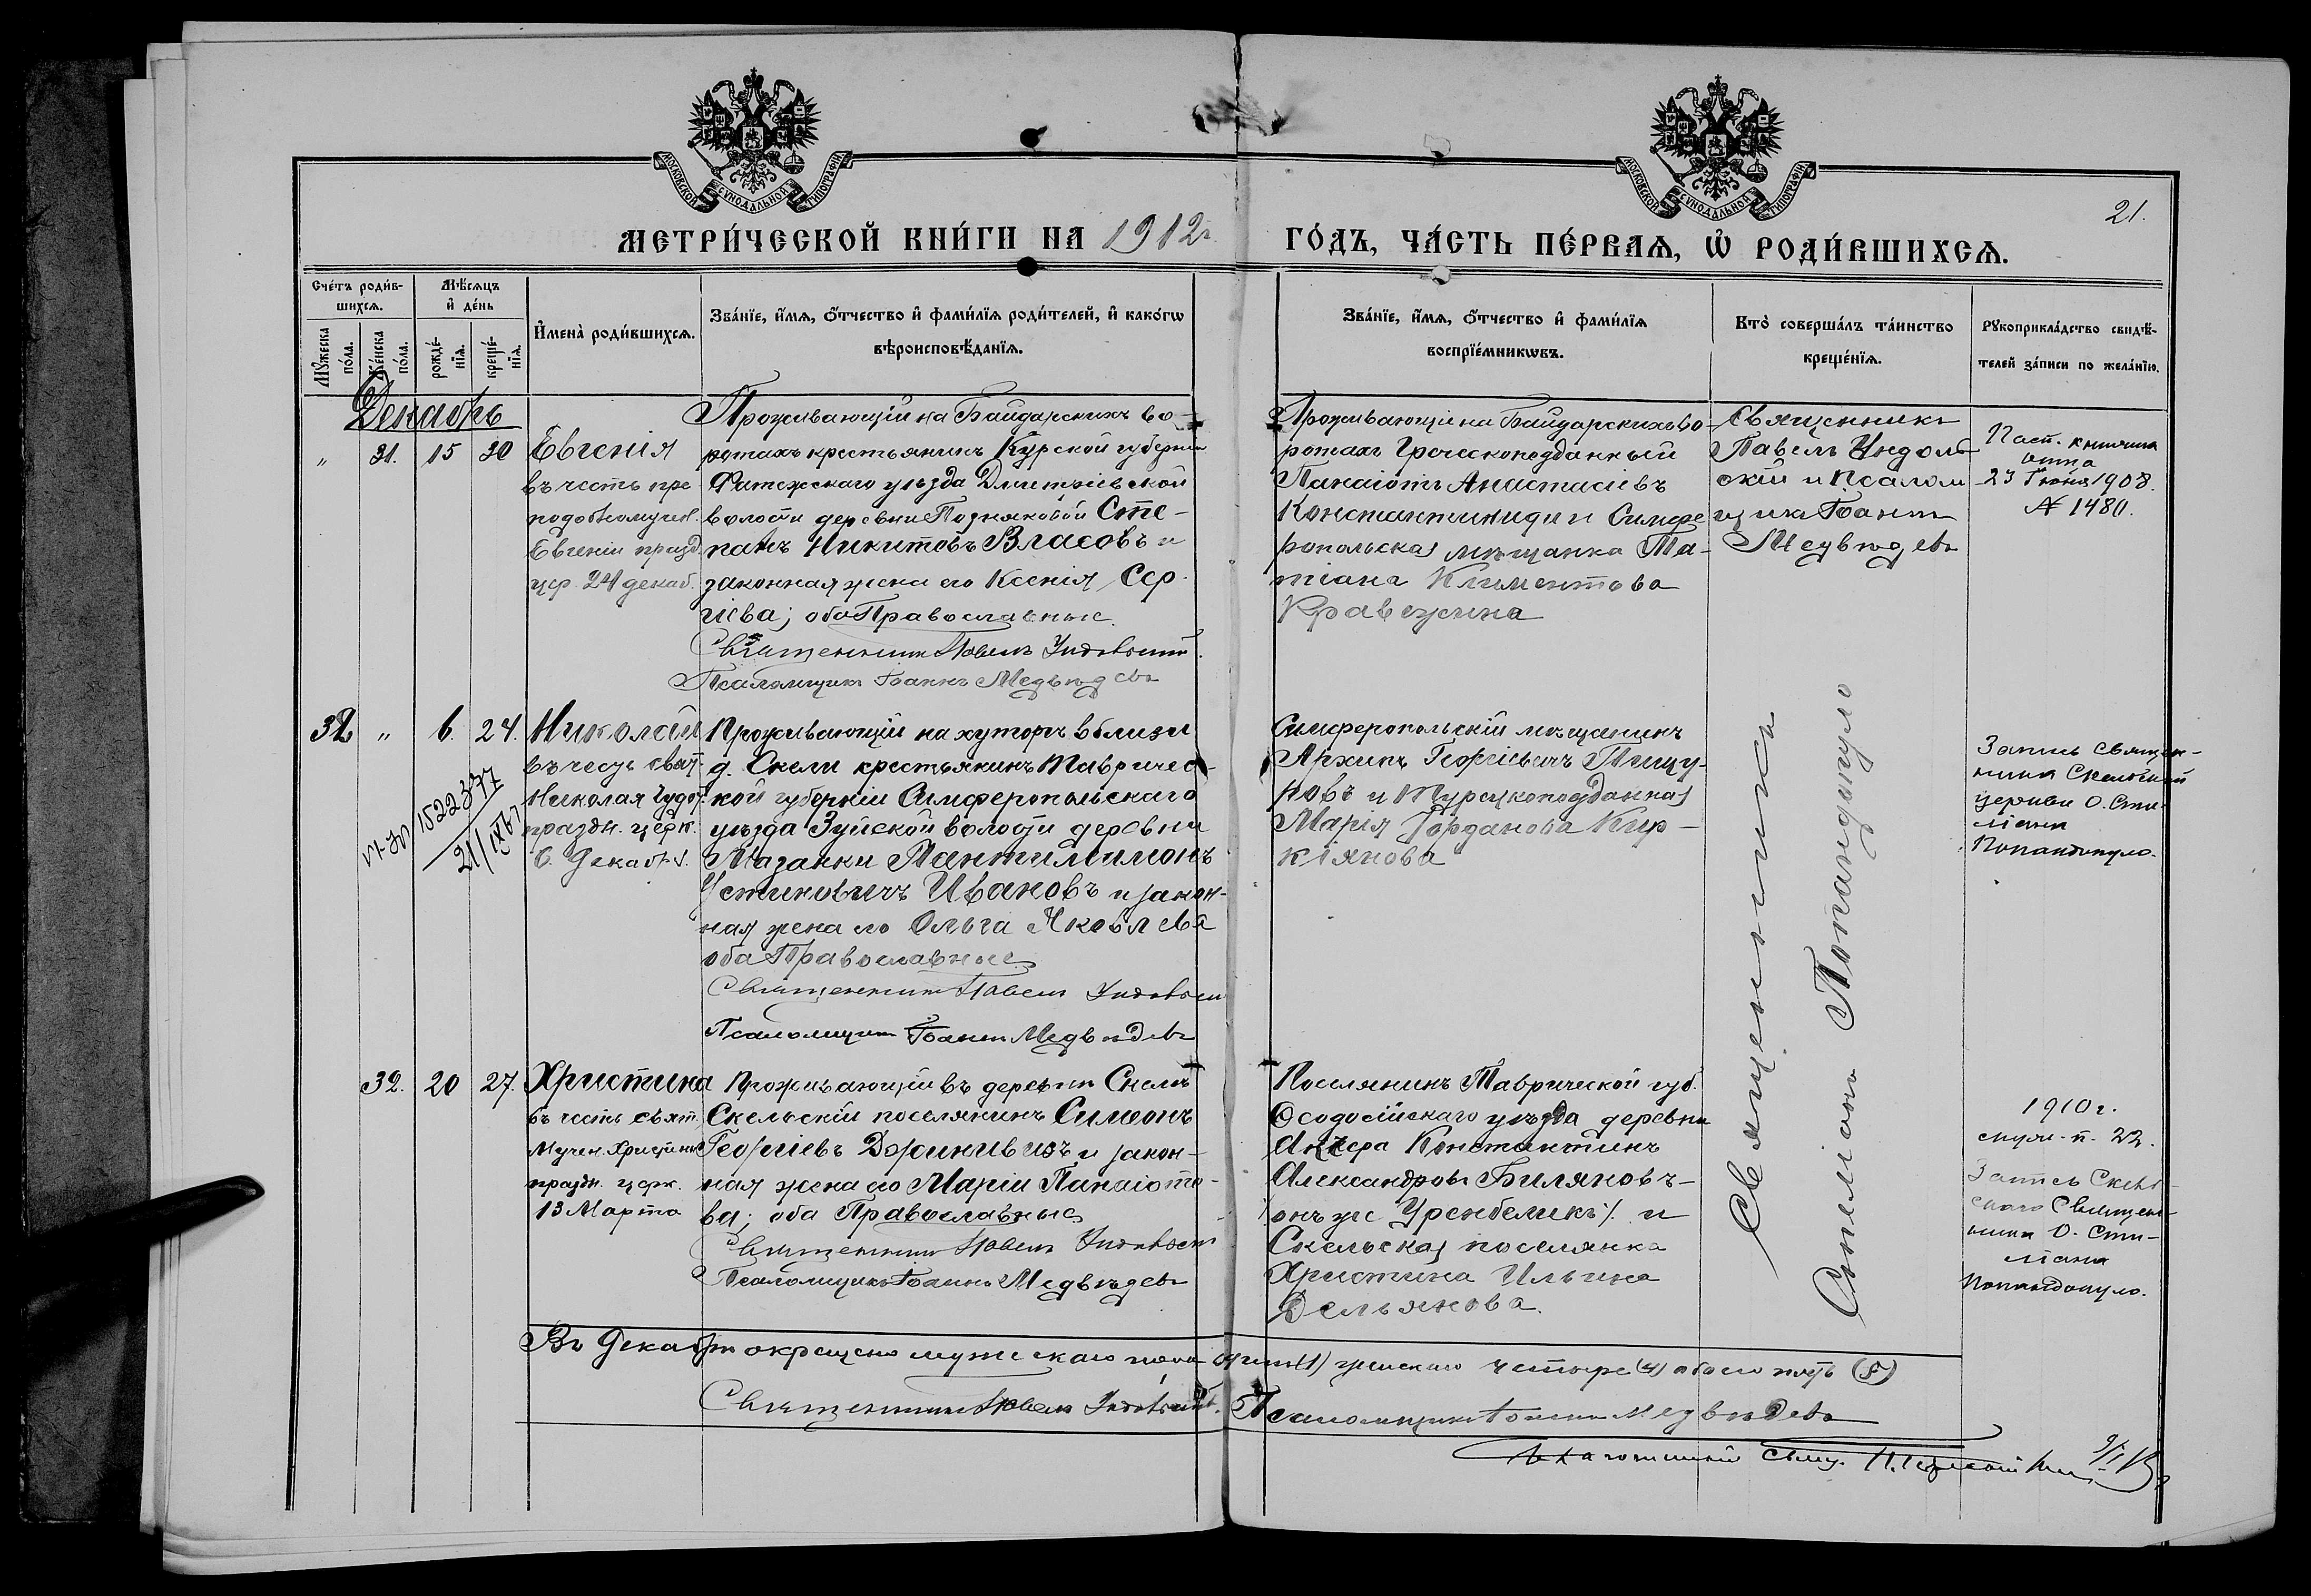 МОСКОВСКОЙ СѴНОДАЛЬНОЙ ТИПОГРАФІИ
МОСКОВСКОЙ СѴНОДАЛЬНОЙ ТИПОГРАФІИ
21.
МЕТРИ́ЧЕСКОЙ КНИ́ГИ НА 1912 г.
ГО́ДЪ, ЧА́СТЬ ПЕ́РВАѦ, Ѡ҆ РОДИ́ВШИХСѦ.
Сче́тъ роди́в-
шихсѧ.
Мѣ́сѧцъ
и҆ де́нь
Мꙋ́жеска по́ла.
Же́нска по́ла.
рожде́-
нїѧ.
креще́-
нїѧ.
И҆мена̀ роди́вшихсѧ.
Зва́нїе, и҆́мѧ, ѻ҆́тчество и҆ фами́лїѧ роди́телей, и҆ како́гѡ
вѣроисповѣ́данїѧ.
Зва́нїе, и҆́мѧ, ѻ҆́тчество и҆ фами́лїѧ
воспрїе́мникѡвъ.
Кто̀ соверша́лъ та́инство
креще́нїѧ.
Рꙋкоприкла́дство свидѣ́-
телей за́писи по жела́нїю.
Декабрь
" 31. 15 30
Евгенія
въ честь пре
подобномучен.
Евгеніи празд.
цер. 24 декаб.
Проживающій на Байдарскихъ во-
ротахъ крестьянинъ Курской губерніи
Фатежскаго уѣзда Дмитріевской
волости деревни Поздняковой Сте-
панъ Никитовъ Власовъ и
законная жена его Ксенія Сер-
гіева; оба Православные.
Священникъ Павелъ Ундольскій.
Псаломщикъ Іоаннъ Медвѣдевъ
Проживающій на Байдарскихъ во-
ротахъ Греческоподданный
Панаіотъ Анастасіевъ
Константиниди и Симфе
ропольская мѣщанка Та-
тіана Климентова
Священникъ
Павелъ Ундоль
скій и Псалом
щикъ Іоаннъ
Медвѣдевъ
Пасп. книжка
отца
23 Іюня 1908.
№ 1480.
32 " 6. 24.
1522377
Николай
въ честь свят.
Николая Чудот.
праздн. церк.
6. Декабря.
Проживающій на хуторѣ вблизи
д. Скели крестьянинъ Тавричес-
кой губерніи Симферопольскаго
уѣзда Зуйской волости деревни
Мазанки Пантилимонъ
Устиновичъ Ивановъ и закон-
ная жена его Ольга Яковлева
оба Православные
Священникъ Павелъ Ундольскій
Псаломщикъ Іоаннъ Медвѣдевъ
Симферопольскій мѣщанинъ
Архипъ Георгіевичъ
и Турецкоподданная
Марія Іорданова Кир-
кіянова
Священникъ
Стиліанъ Попандопуло
Запись священ-
ника Скельской
церкви О. Сти-
ліана
Попандопуло.
32. 20 27.
Христина
въ честь свят.
Мучен. Христины
праздн. церк.
13 Марта
Проживающій въ деревни Скели
Скельскій поселянинъ Симеонъ
Георгіевъ и закон-
ная жена его Марія Панаіото-
ва; оба Православные
Священникъ Павелъ Ундольскій
Псаломщикъ Іоаннъ Медвѣдевъ
Поселянинъ Таврической губ.
Ѳеодосійскаго уѣзда деревни
Константинъ
Александровъ Биляновъ-
онъ же Уренбеликъ и
Скельская поселянка
Христина Ильина
Дельянова.
1910 г.
22.
Запись Скель-
скаго Священ-
ника О. Сти-
ліана
Попандопуло.
Въ Декабрѣ окрещено мужескаго пола одинъ (1) женскаго четыре (4) обоего пять (5)
Священникъ Павелъ Ундольскій. Псаломщикъ Іоаннъ Медвѣдевъ
Благочинный Свящ.